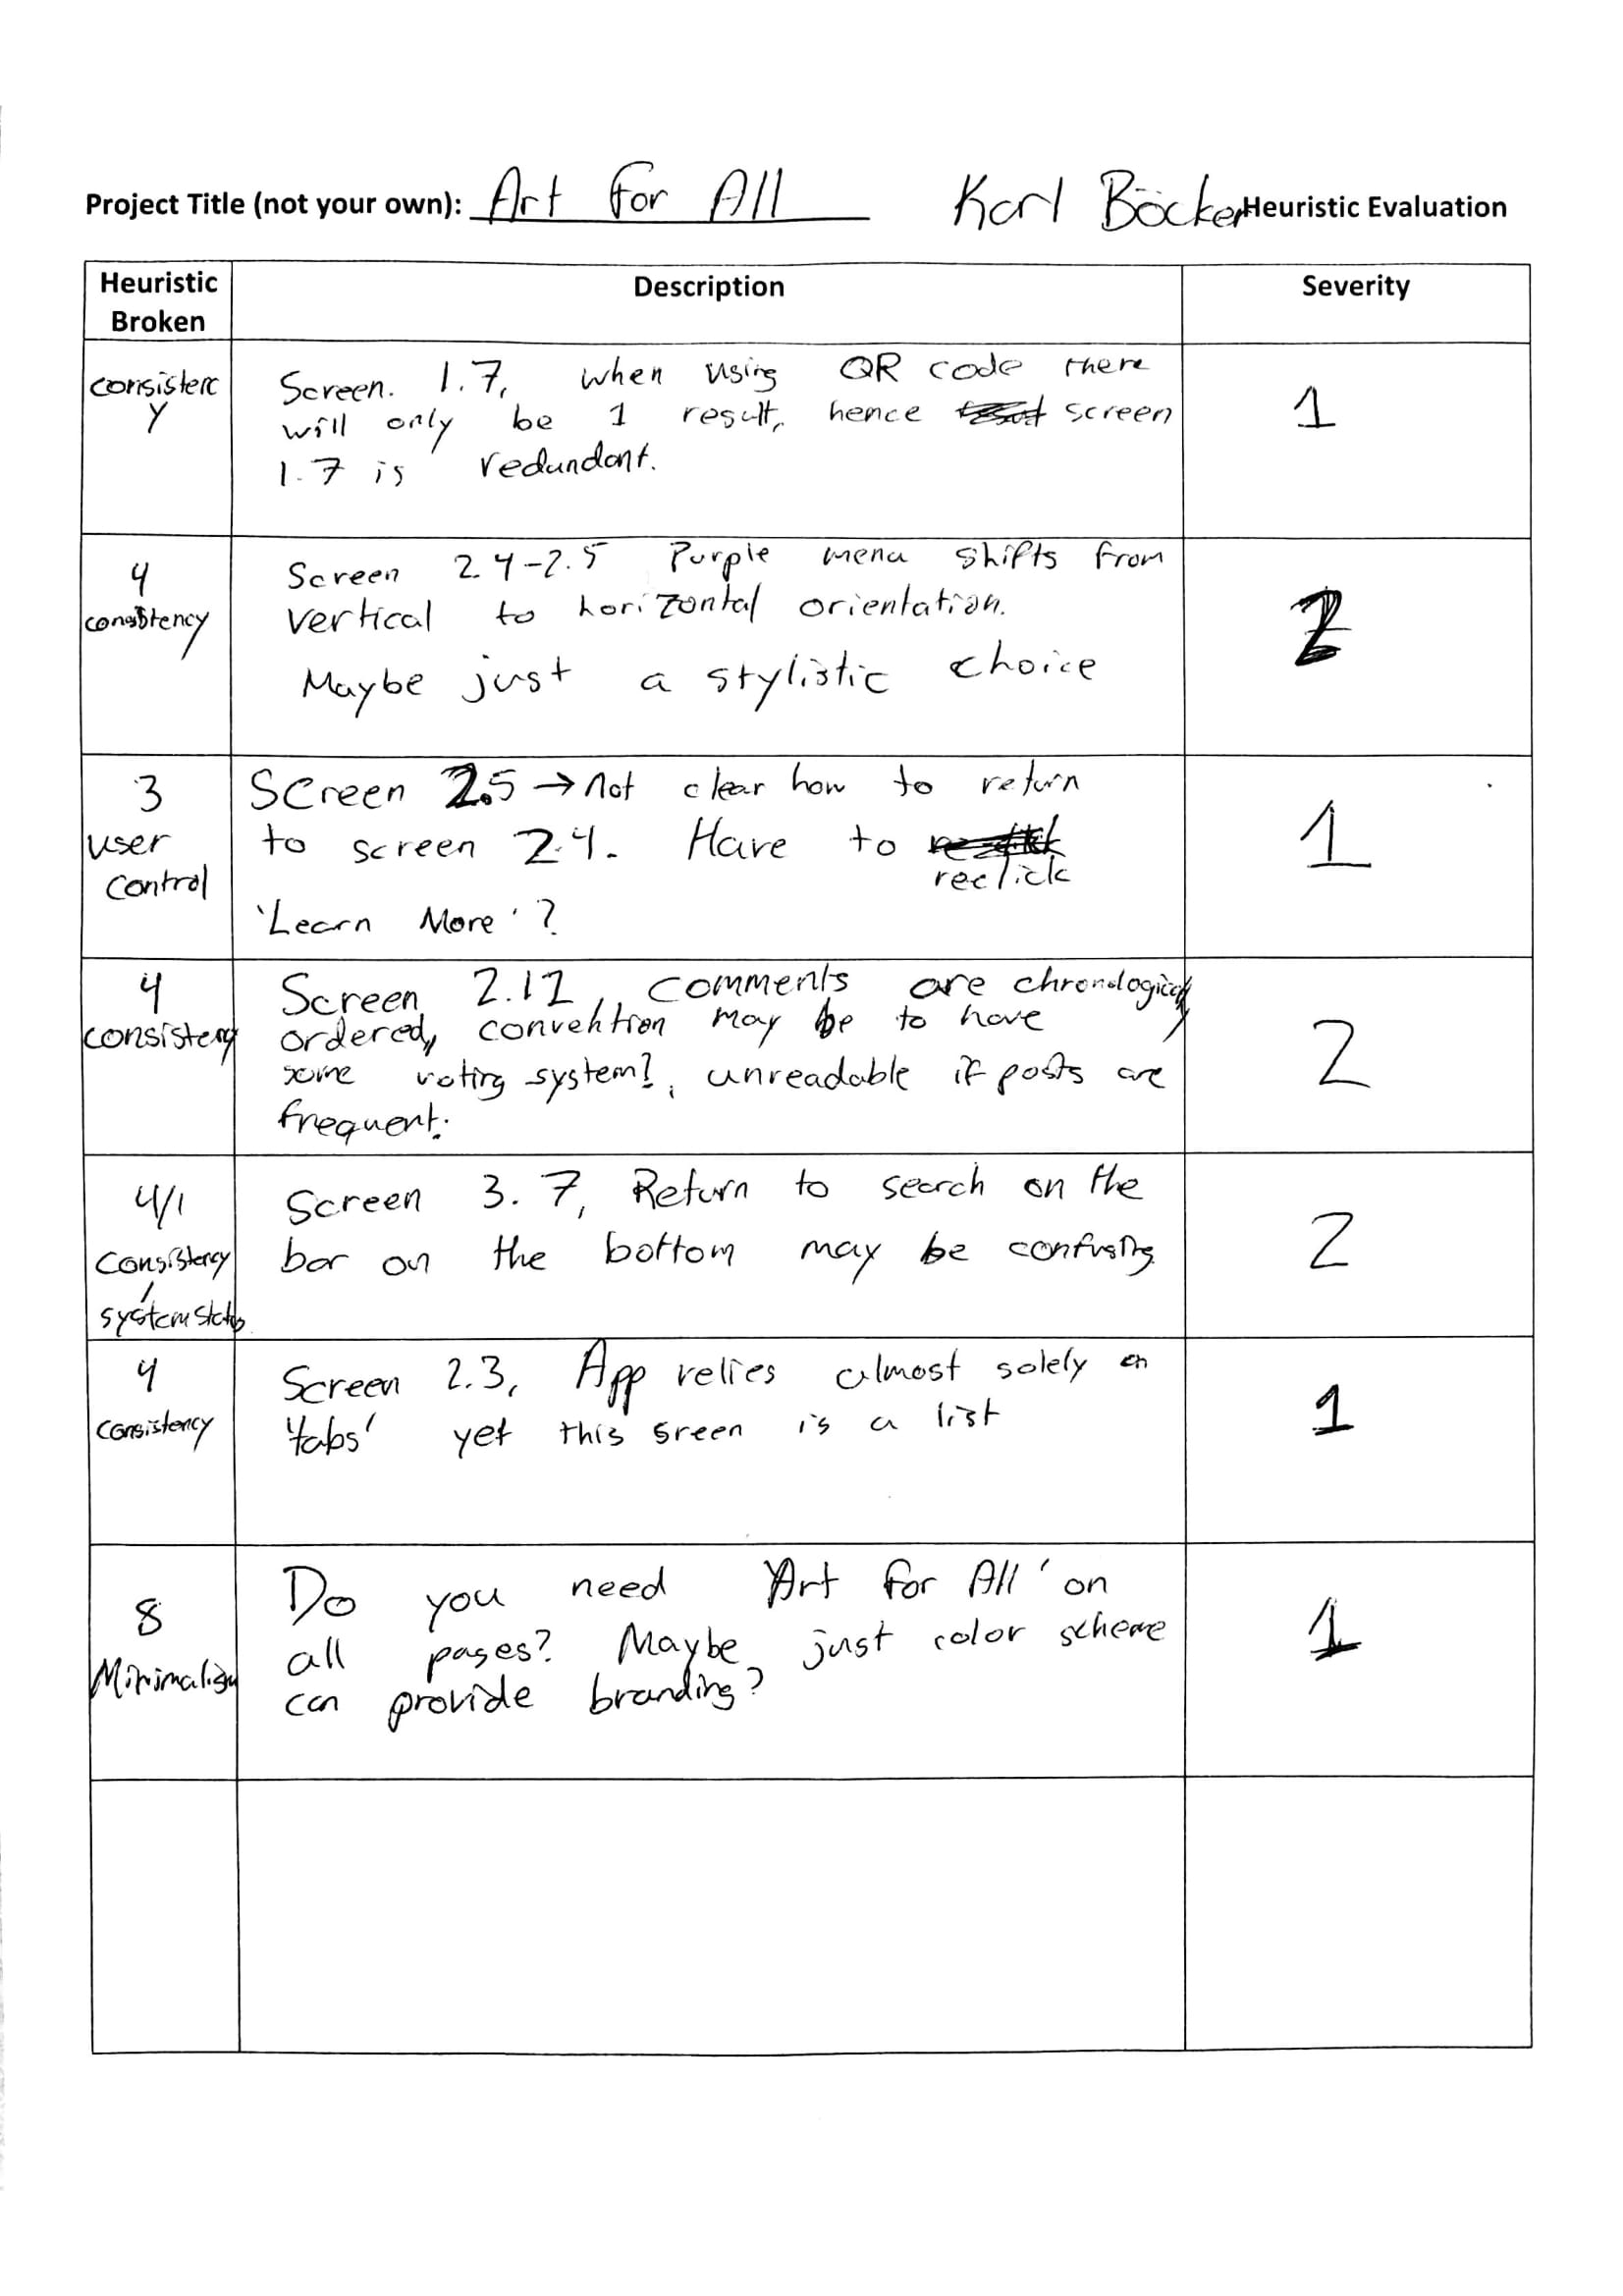 Project Title (not your own): Art For All Karl Böcker Heuristic Evaluation
Heuristic Broken
Description
Severity
consistenc
y
Screen. 1.7, when using QR code there
will only be 1 result, hence screen
1.7 is redundant.
1
4
consistency
Screen 2.4-2.5 Purple menu shifts from
vertical to horizontal orientation.
Maybe just a stylistic choice
2
3
user
control
Screen 2.5 → Not clear how to return
to screen 2.4. Have to
reclick
'Learn More'?
1
4
consistency
Screen 2.12, comments are chronologically
ordered, convention may be to have
some voting system?, unreadable if posts are
frequent.
2
4/1
Consistency
/
system status
Screen 3.7, Return to search on the
bar on the bottom may be confusing
2
4
consistency
Screen 2.3, App relies almost solely on
'tabs' yet this sreen is a list
1
8
Minimalism
Do you need 'Art for All' on
all pages? Maybe just color scheme
can provide branding?
1